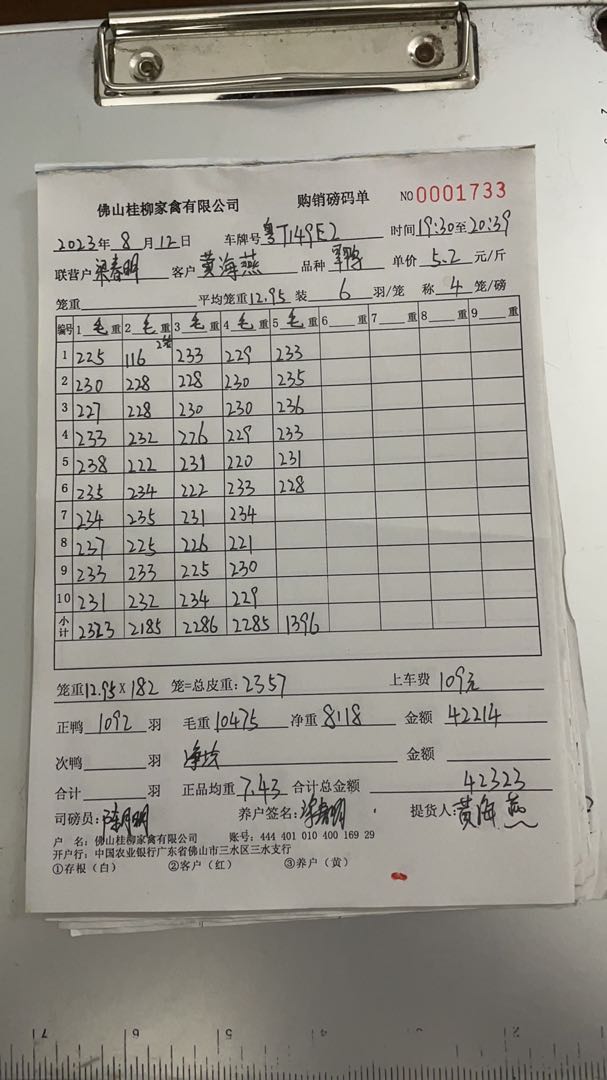 佛山桂柳家禽有限公司 购销磅码单 NO 0001733
2023年 8 月 12 日 车牌号 粤T149E2 时间 19:30至20:39
联营户 梁春明 客户 黄海燕 品种 单价 5.2 元/斤
笼重 平均笼重 12.95 装 6 羽/笼 称 4 笼/磅
编号 1 毛 重 2 毛 重 3 毛 重 4 毛 重 5 毛 重 6 重 7 重 8 重 9 重
1 225 116 2笼 233 229 233
2 230 228 228 230 235
3 227 228 230 230 236
4 233 232 226 229 233
5 238 222 231 220 231
6 235 234 222 233 228
7 234 235 231 234
8 237 225 226 221
9 233 233 225 230
10 231 232 234 229
小计 2323 2185 2286 2285 1396
笼重 12.95 X 182 笼=总皮重: 2357 上车费 109元
正鸭 1092 羽 毛重 10475 净重 8118 金额 42214
次鸭 羽 金额
合计 羽 正品均重 7.43 合计总金额 42323
司磅员: 养户签名: 梁春明 提货人: 黄海燕
户 名: 佛山桂柳家禽有限公司 账号: 444 401 010 400 169 29
开户行: 中国农业银行广东省佛山市三水区三水支行
①存根（白） ②客户（红） ③养户（黄）
7 6 5 4 3 2 1